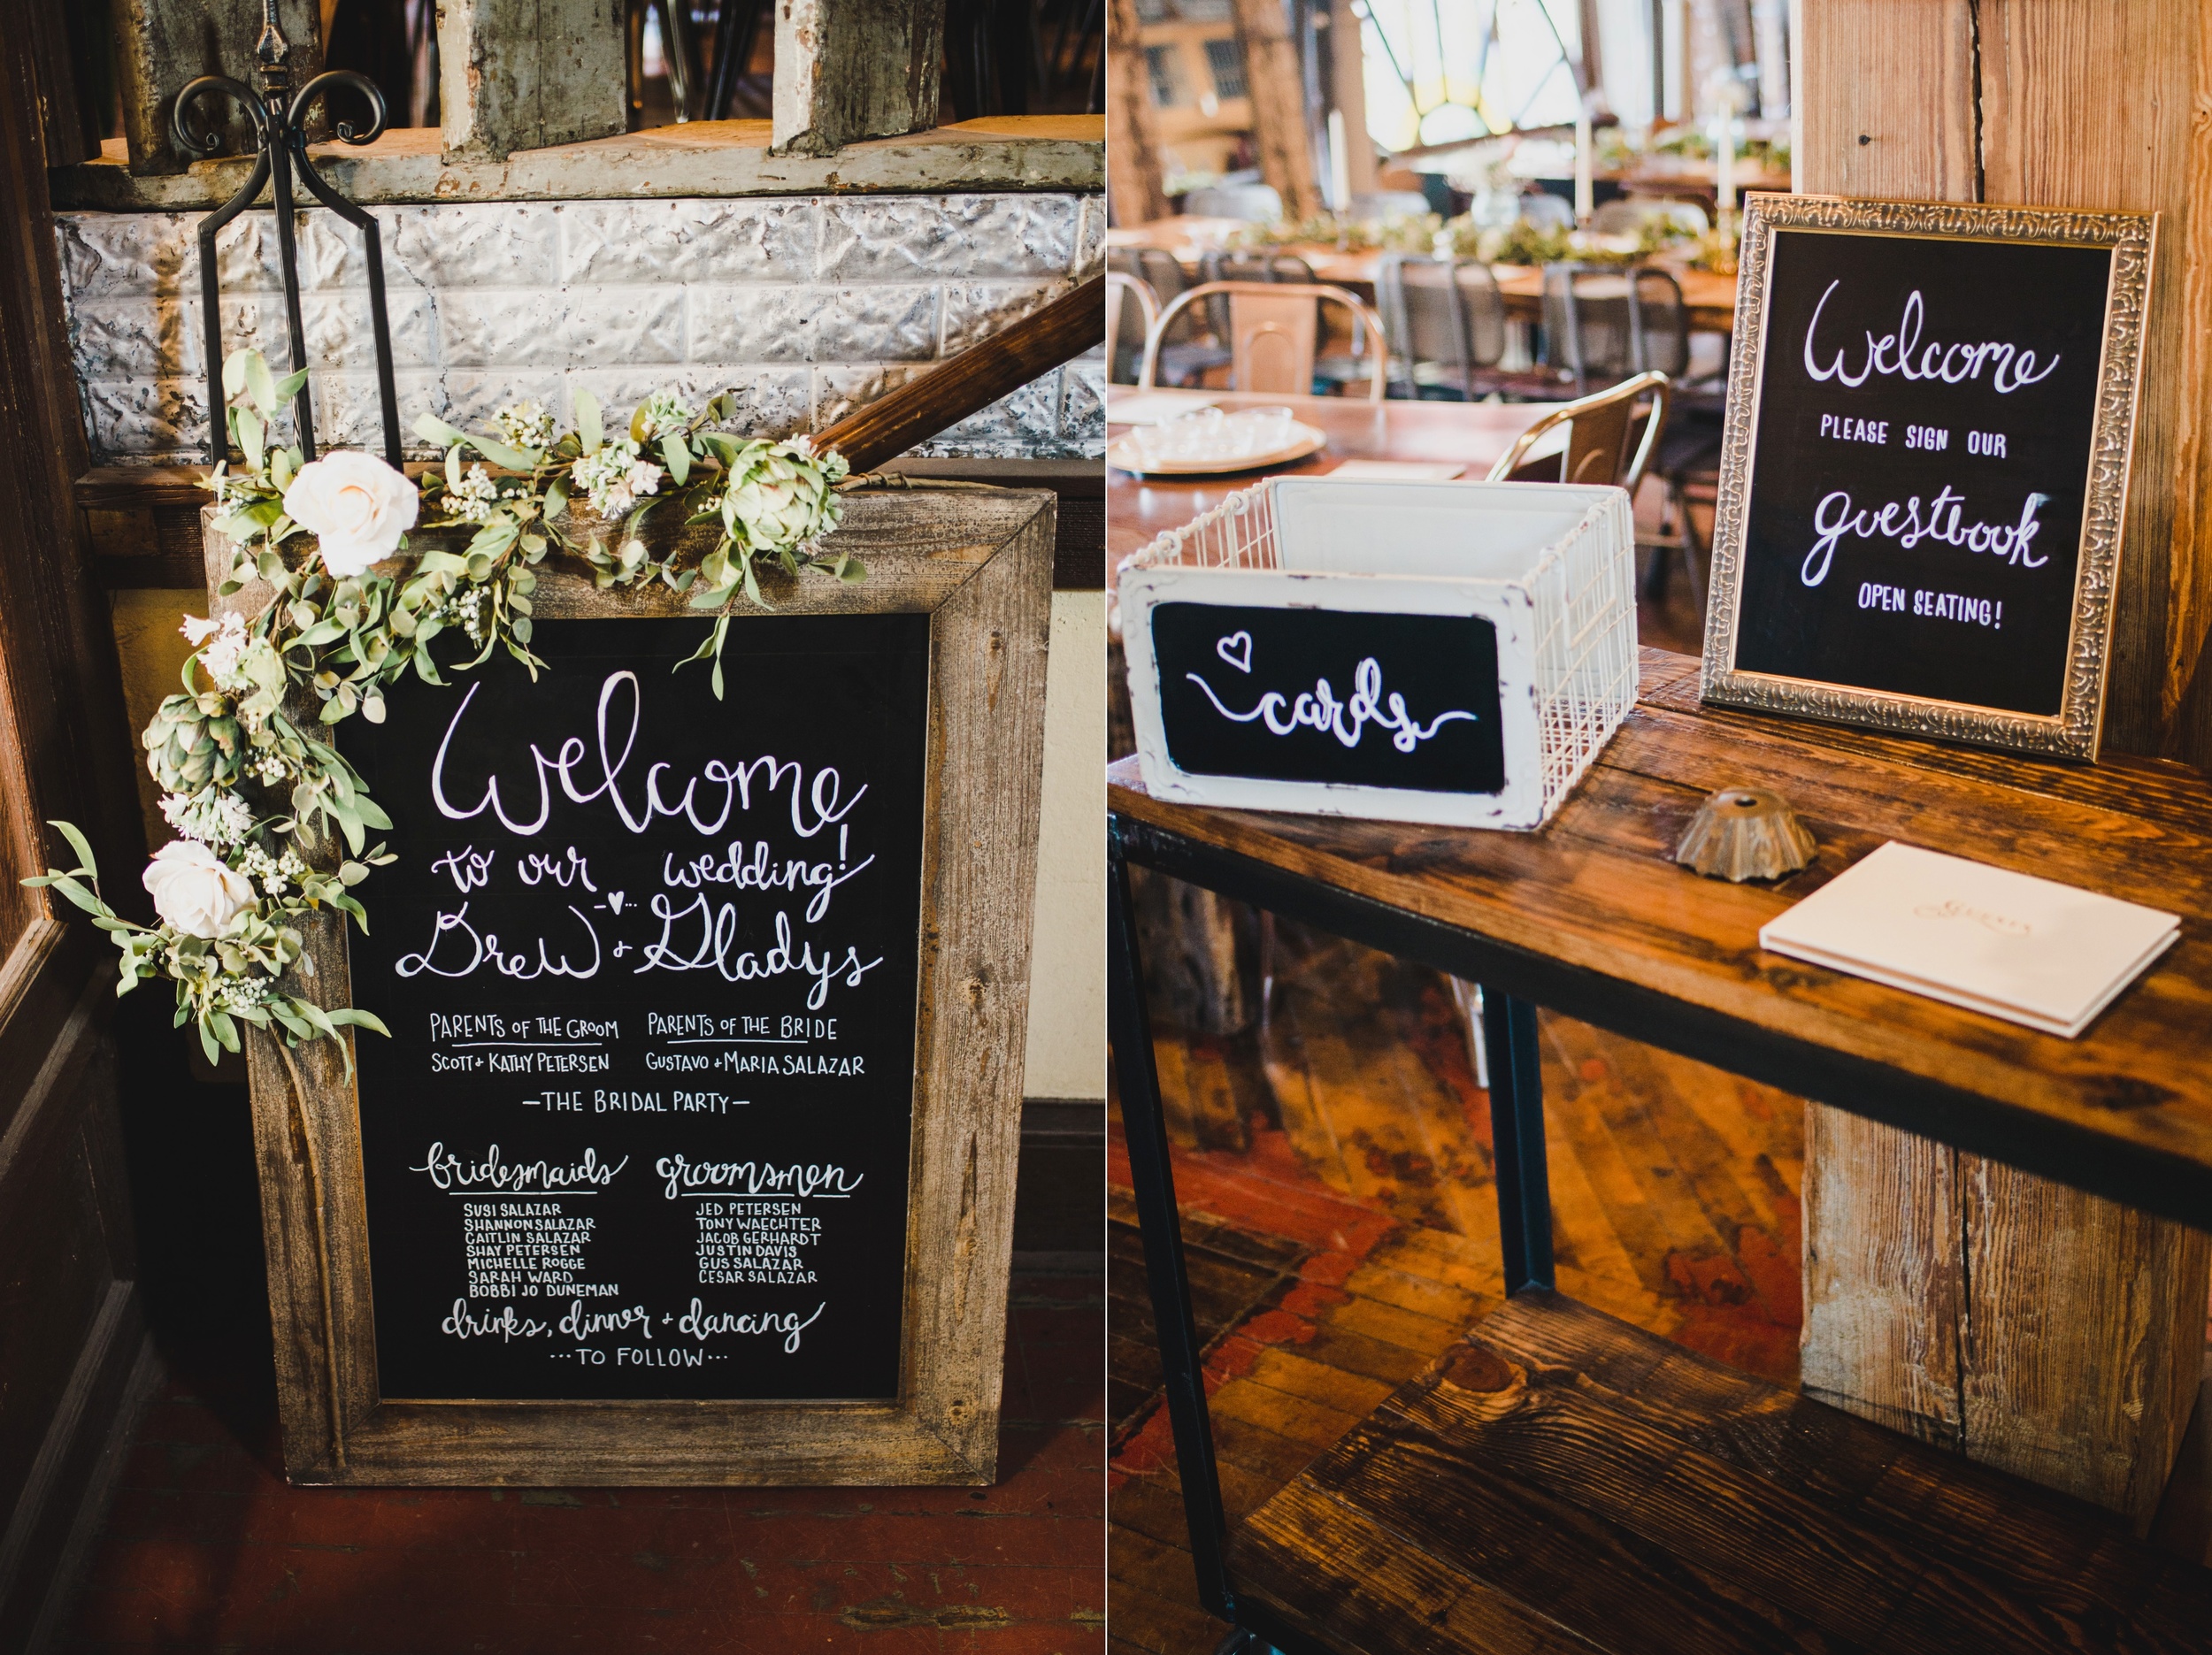 Welcome
to our wedding!
Drew + Gladys
PARENTS OF THE GROOM
SCOTT + KATHY PETERSEN
PARENTS OF THE BRIDE
GUSTAVO + MARIA SALAZAR
—THE BRIDAL PARTY—
bridesmaids
SUSI SALAZAR
SHANNON SALAZAR
CAITLIN SALAZAR
SHAY PETERSEN
MICHELLE ROGGE
SARAH WARD
BOBBI JO DUNEMAN
groomsmen
JED PETERSEN
TONY WAECHTER
JACOB GERHARDT
JUSTIN DAVIS
GUS SALAZAR
CESAR SALAZAR
drinks, dinner + dancing
...TO FOLLOW...
cards
Welcome
PLEASE SIGN OUR
guestbook
OPEN SEATING!